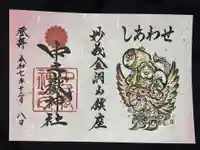 しあわせ
妙義金洞山鎮座
中之嶽神社
奉拝
令和七年十二月
八日